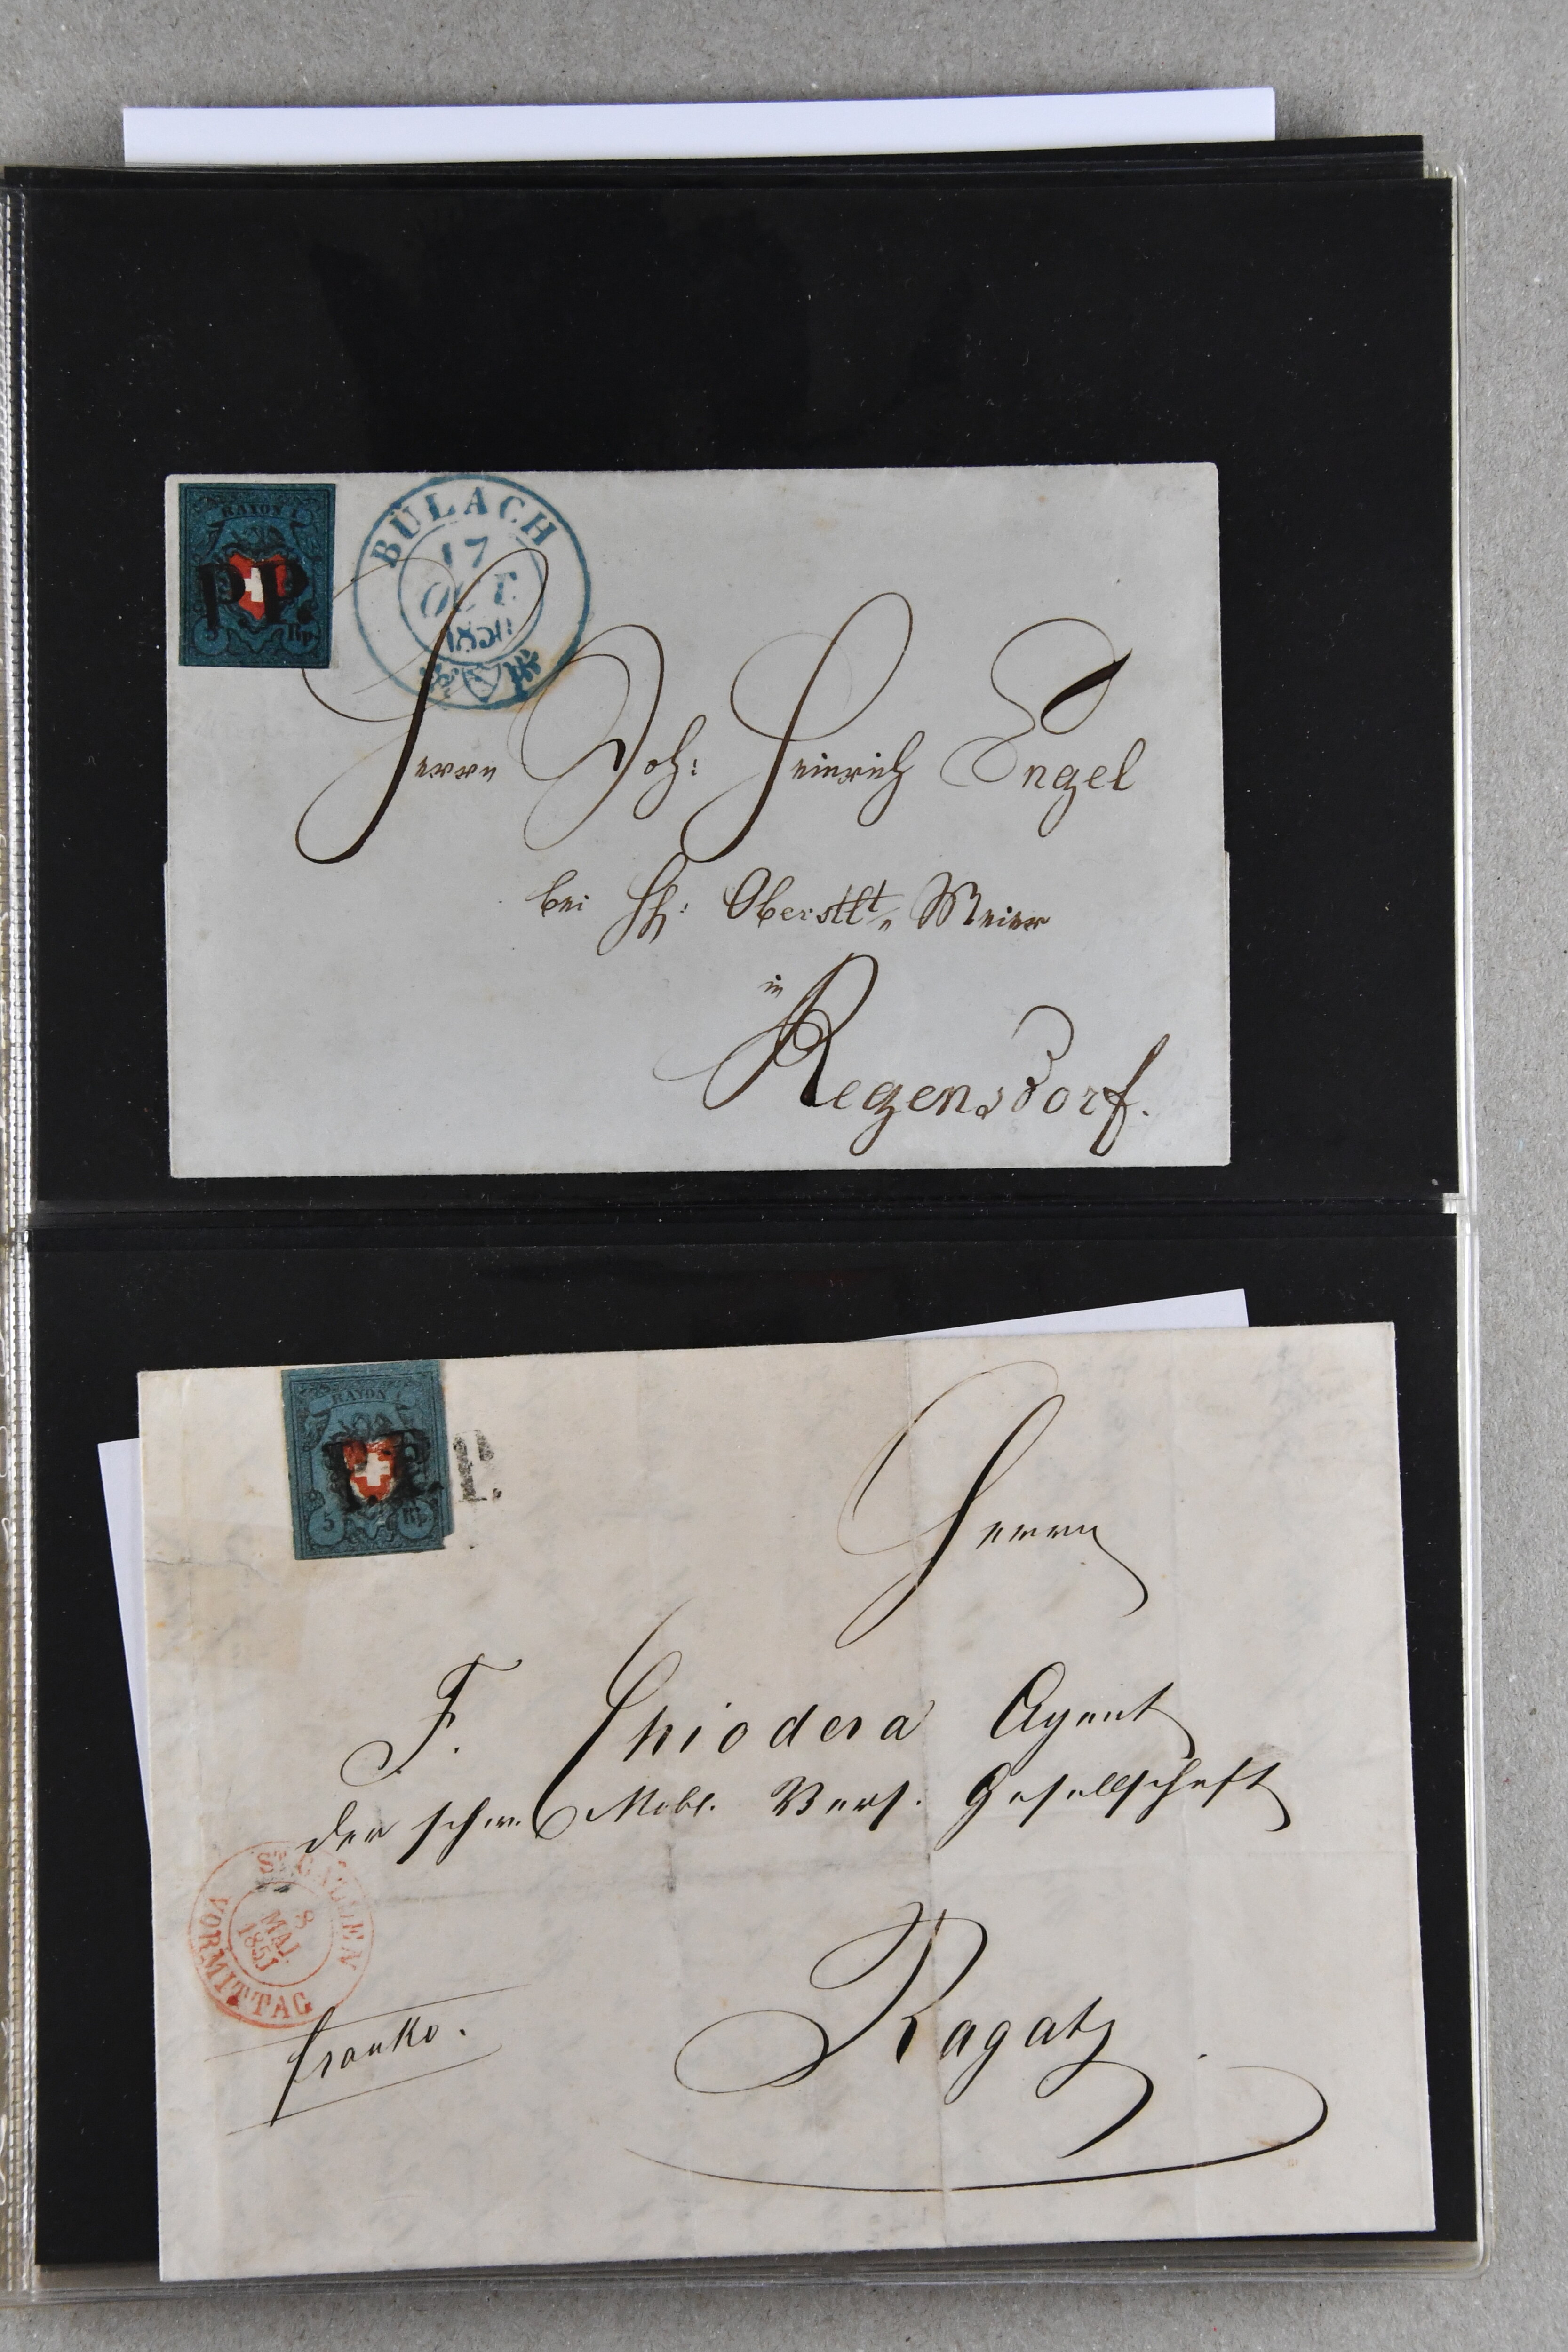 RAYON I
P.P.
5 Rp.
BÜLACH
17
OCT
1850
Herrn Joh: Heinrich Engel
bei Hh: Oberstlt. Meier
in
Regensdorf.
RAYON I
P.P.
P.
5 Rp.
Herrn
F. Chiodera Agent
der schw. Mobl. Vers. Gesellschaft
ST. GALLEN
8
MAI
1851
VORMITTAG
franko.
Ragatz